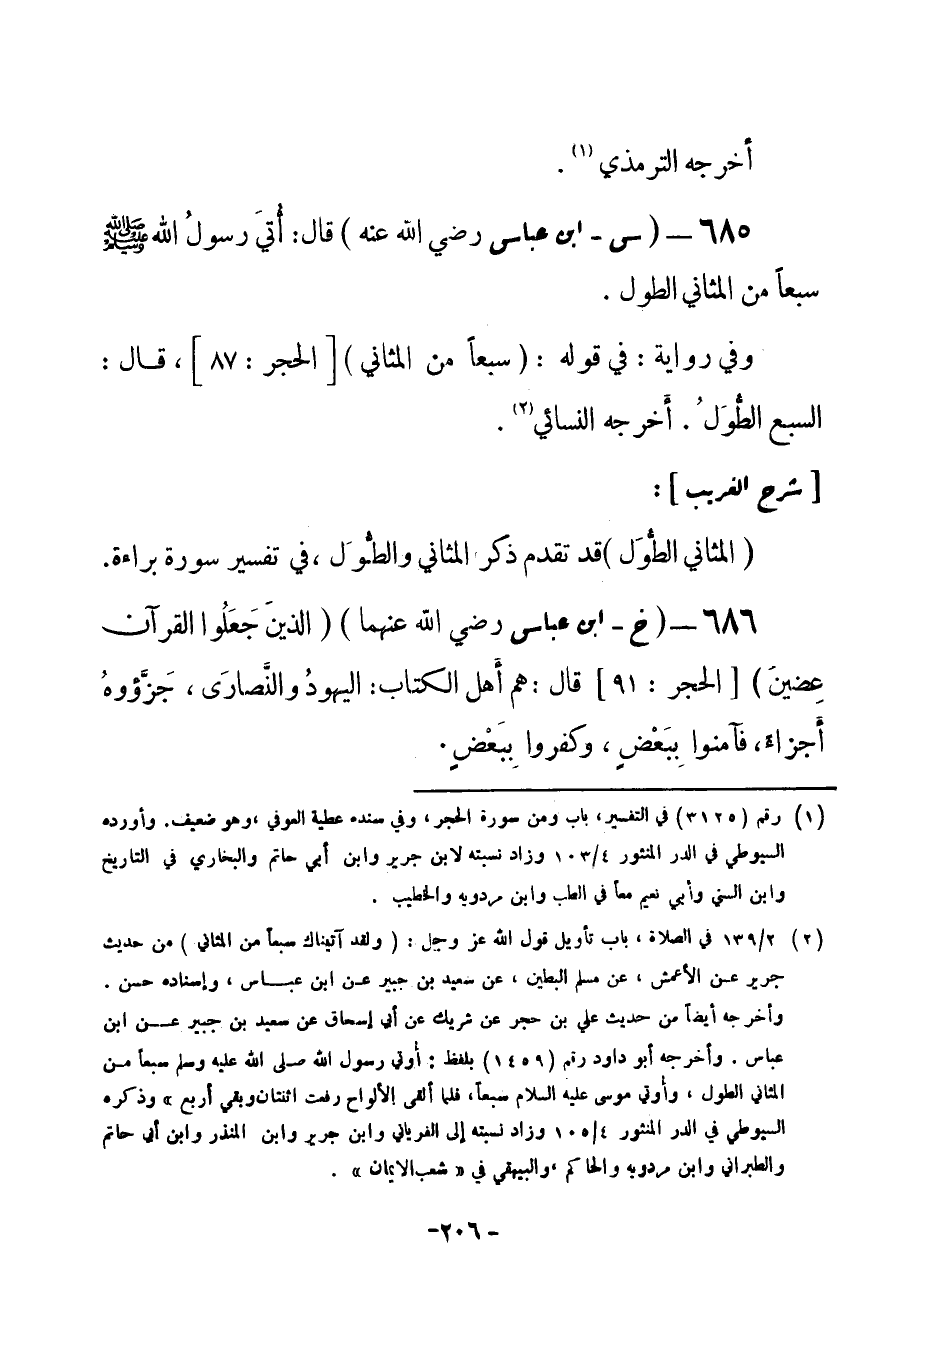 أخرجه الترمذي (١) .
٦٨٥ — ( س - ابن عباس رضي الله عنه ) قال: أُتيَ رسولُ الله ﷺ
سبعاً من المثاني الطول .
وفي رواية : في قوله : ( سبعاً من المثاني ) [ الحجر : ٨٧ ] ، قال :
السبع الطُّوَلُ . أَخرجه النسائي (٢) .
[ شرح الغريب ] :
( المثاني الطُّوَل ) قد تقدم ذكر المثاني والطُّوَل ، في تفسير سورة براءة.
٦٨٦ — ( خ - ابن عباس رضي الله عنهما ) ( الذينَ جَعَلُوا القرآن
عِضينَ ) [ الحجر : ٩١ ] قال : هم أَهل الكتاب: اليهودُ والنَّصارَى ، جَزَّؤوهُ
أَجزاءً، فآمنوا بِبَعْضٍ ، وكفروا بِبَعْضٍ .
(١) رقم (٣١٢٥) في التفسير، باب ومن سورة الحجر، وفي سنده عطية العوفي ،وهو ضعيف. وأورده
السيوطي في الدر المنثور ١٠٣/٤ وزاد نسبته لابن جرير وابن أبي حاتم والبخاري في التاريخ
وابن السني وأبي نعيم معاً في الطب وابن مردويه والخطيب .
(٢) ١٣٩/٢ في الصلاة ، باب تأويل قول الله عز وجل : ( ولقد آتيناك سبعاً من المثاني ) من حديث
جرير عن الأعمش ، عن مسلم البطين ، عن سعيد بن جبير عن ابن عباس ، وإسناده حسن .
وأخرجه أيضاً من حديث علي بن حجر عن شريك عن أبي إسحاق عن سعيد بن جبير عن ابن
عباس . وأخرجه أبو داود رقم (١٤٥٩) بلفظ : أُوتي رسول الله صلى الله عليه وسلم سبعاً من
المثاني الطول ، وأُوتي موسى عليه السلام سبعاً، فلما ألقى الألواح رفعت اثنتان وبقي أربع » وذكره
السيوطي في الدر المنثور ١٠٥/٤ وزاد نسبته إلى الفرياني وابن جرير وابن المنذر وابن أبي حاتم
والطبراني وابن مردويه والحاكم ،والبيهقي في « شعب الايمان » .
- ٢٠٦-